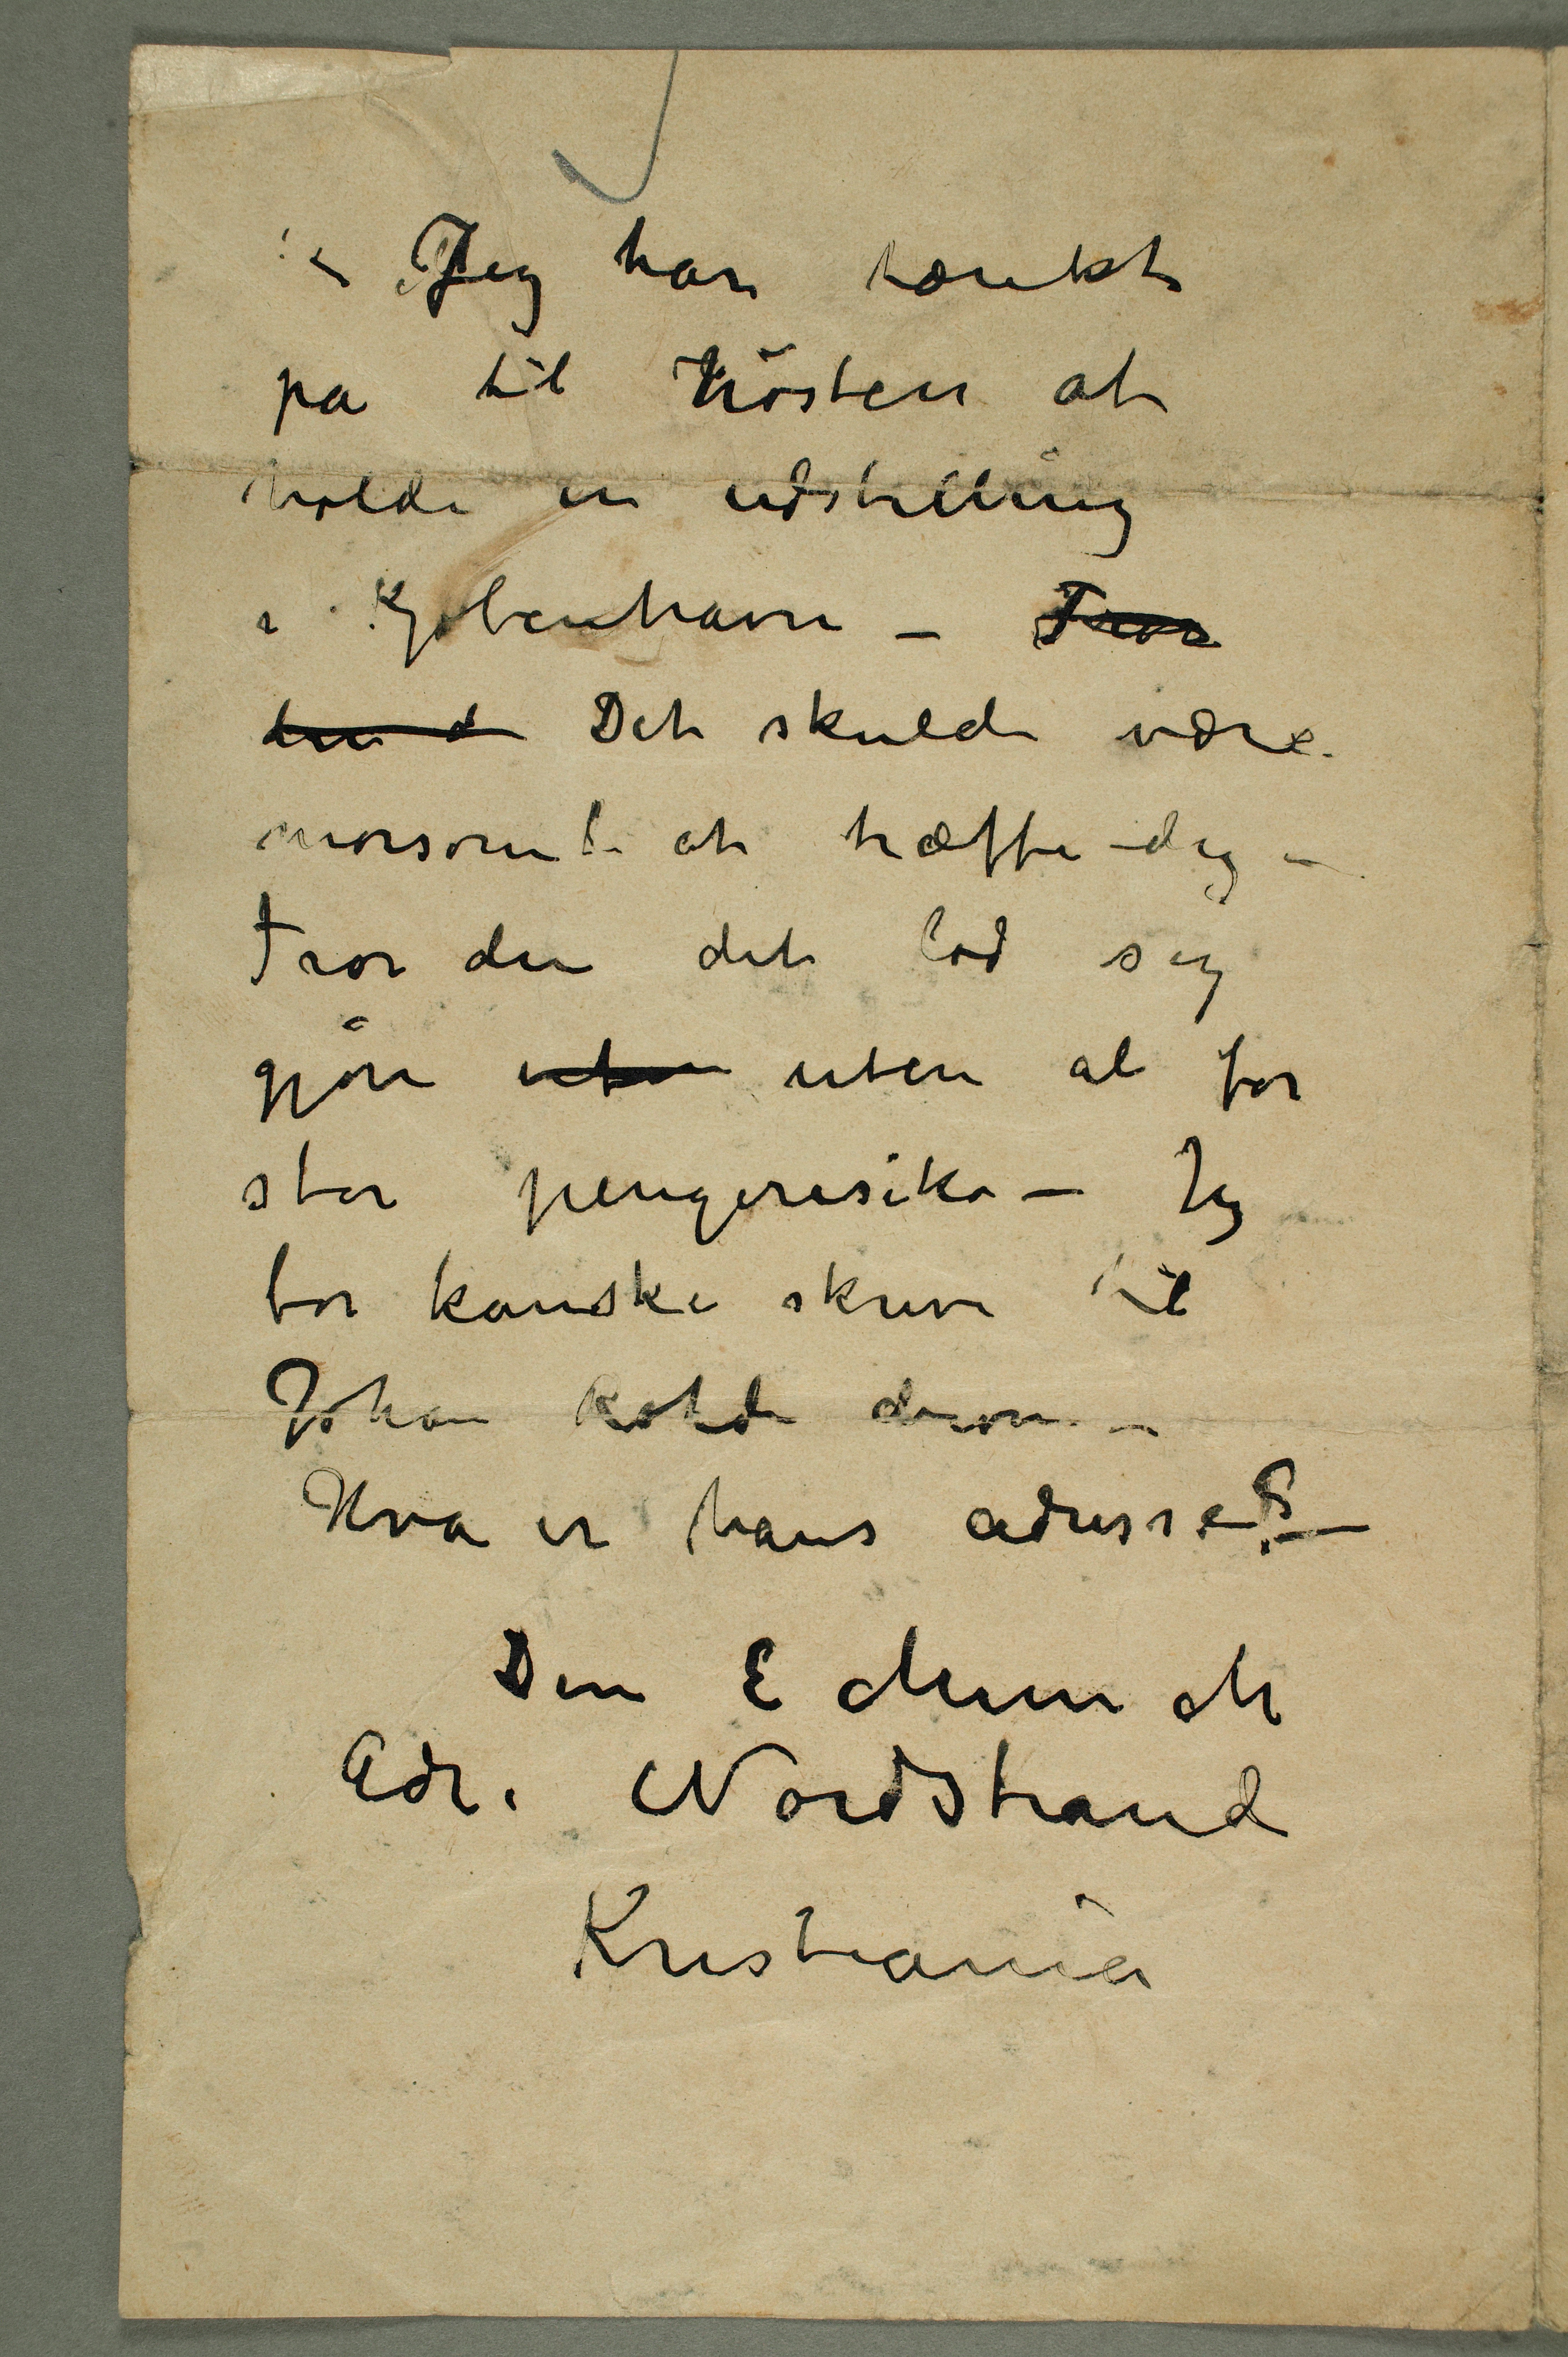 – Jeg har tænkt
pa til Høsten at
holde en udstilling
i Kjøbenhavn – Tror
du d Det skulde være
morsomt at træffe dig –
Tror du det lod sig
gjøre uten uten al for
stor pengerisiko – Jeg
bør kanske skrive til
Johan Rohde derom –
Hva er hans adresse? –
Din E Munch
Adr. Nordstrand
Kristiania